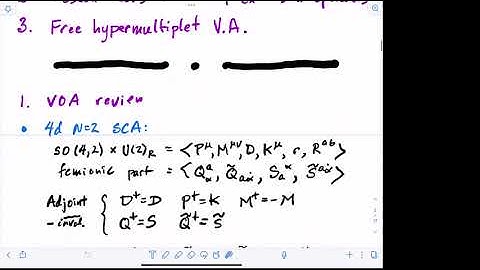 3. Free hypermultiplet V.A.
1. VOA review
• 4d N=2 SCA:
so(4,2) × U(2)_R = ⟨P^μ, M^μν, D, K^μ, r, R^ab⟩
fermionic part = ⟨Q^a_α, Q̃_aα̇, S_a^α, S̃^aα̇⟩
Adjoint { D†=D P†=K M†=-M
-invol. Q†=S Q̃†=S̃